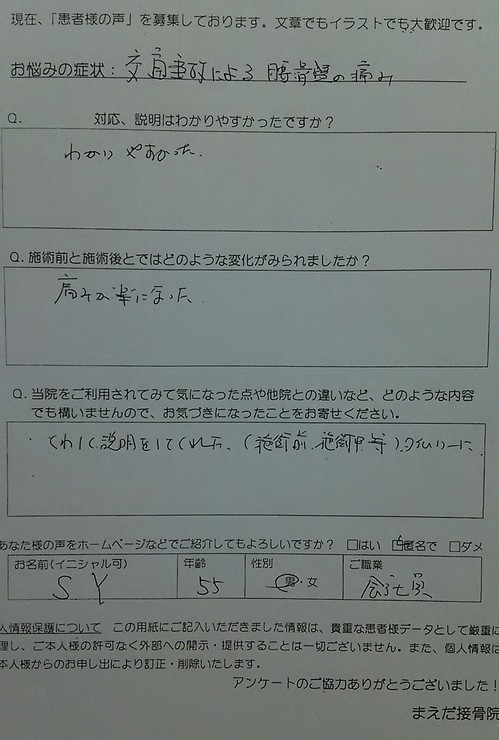 現在、「患者様の声」を募集しております。文章でもイラストでも大歓迎です。
お悩みの症状：交通事故による 腰 骨盤の痛み
Q. 対応、説明はわかりやすかったですか？
わかりやすかった.
Q. 施術前と施術後とではどのような変化がみられましたか？
痛みが楽になった.
Q. 当院をご利用されてみて気になった点や他院との違いなど、どのような内容
でも構いませんので、お気づきになったことをお寄せください。
・くわしく説明をしてくれた、(施術前、施術中等)タイムリーに
あなた様の声をホームページなどでご紹介してもよろしいですか？ □はい □匿名で □ダメ
お名前(イニシャル可) 年齢 性別 ご職業
S Y 55 男・女 会社員
人情報保護について この用紙にご記入いただきました情報は、貴重な患者様データとして厳重に
理し、ご本人様の許可なく外部への開示・提供することは一切ございません。また、個人情報は
本人様からのお申し出により訂正・削除いたします。
アンケートのご協力ありがとうございました！
まえだ接骨院